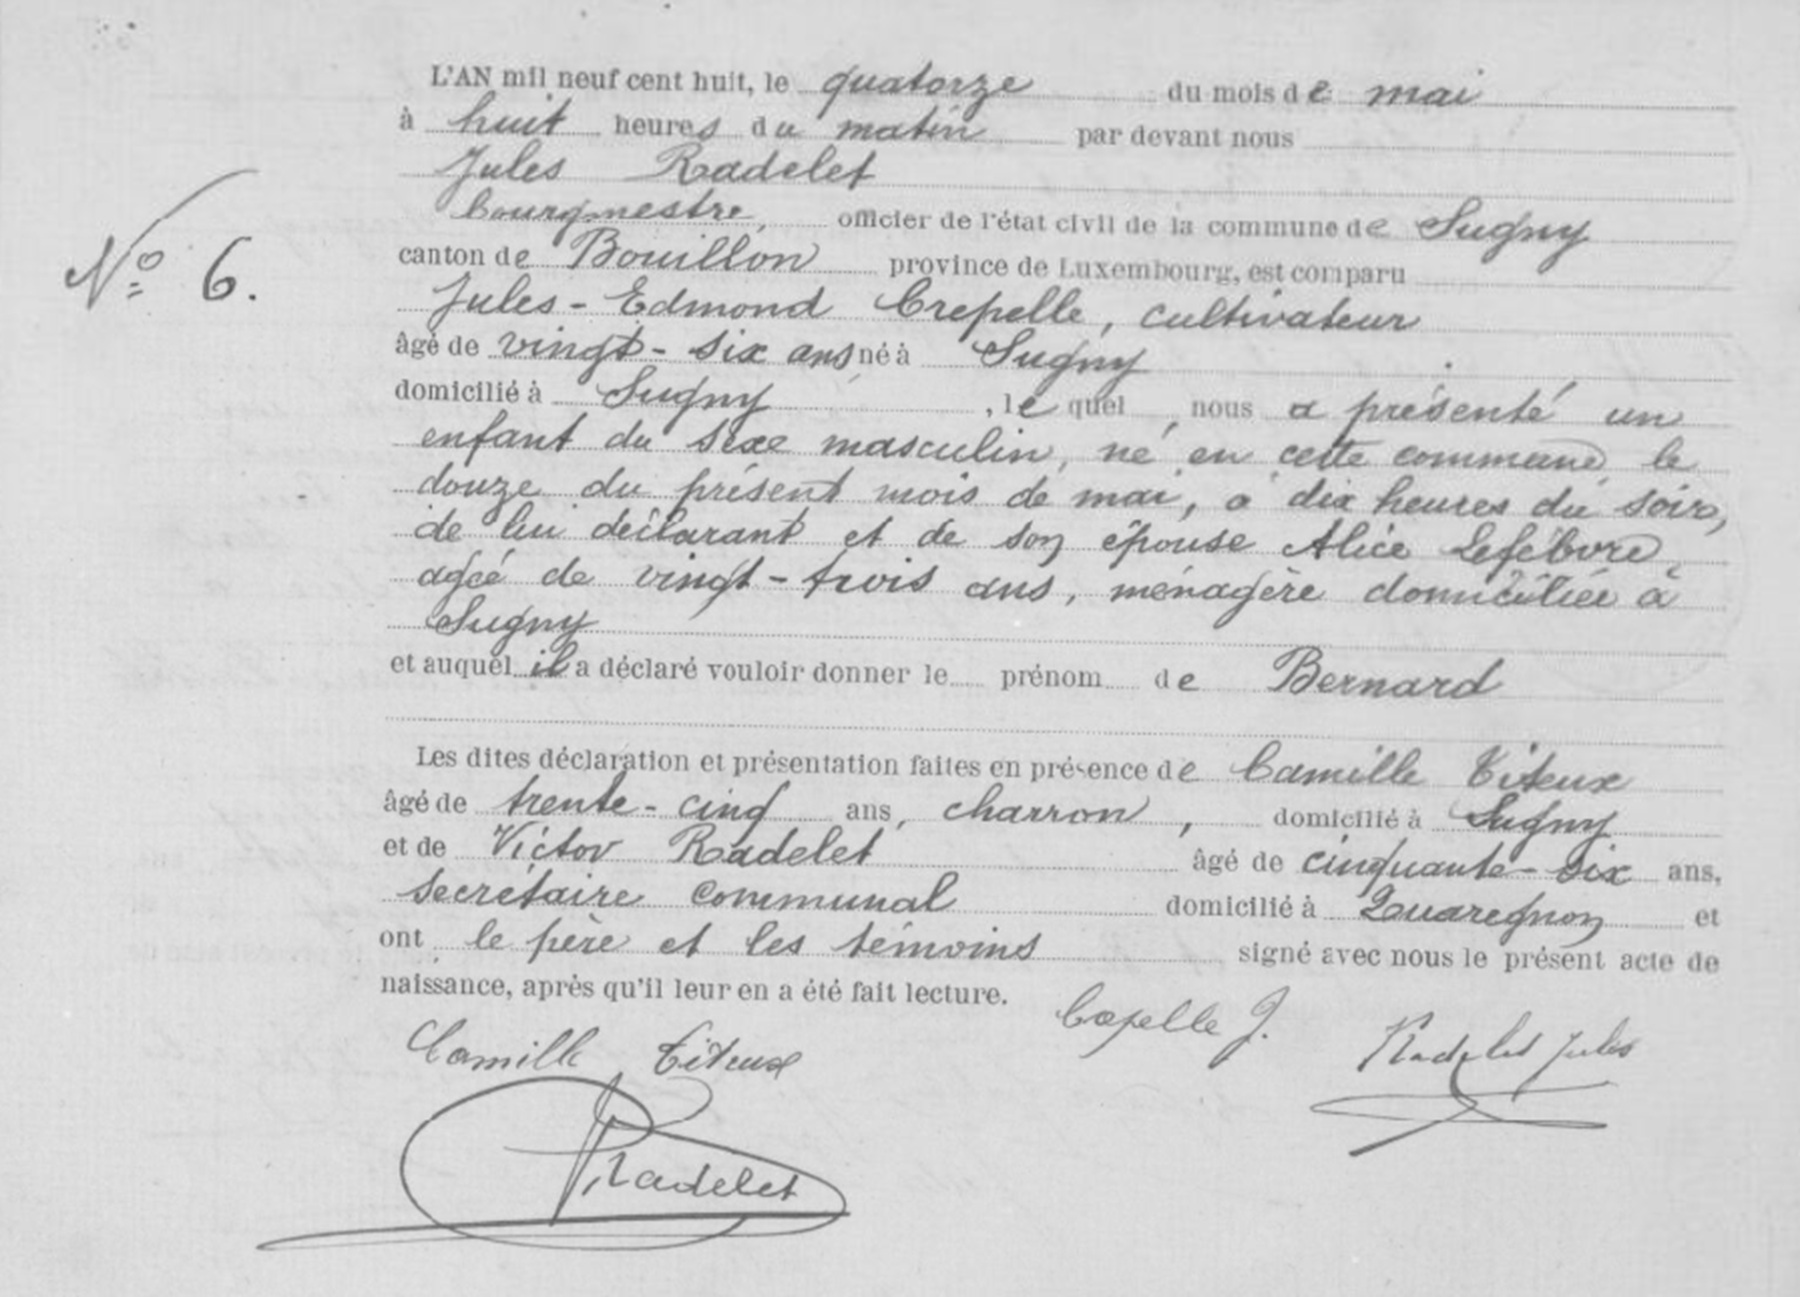 L'AN mil neuf cent huit, le quatorze du mois de mai
à huit heures du matin par devant nous
Jules Radelet
bourgmestre, officier de l'état civil de la commune de Sugny
N° 6.
canton de Bouillon province de Luxembourg, est comparu
Jules-Edmond Crepelle, cultivateur
âgé de vingt-six ans né à Sugny
domicilié à Sugny, lequel, nous a présenté un
enfant du sexe masculin, né en cette commune le
douze du présent mois de mai, à dix heures du soir,
de lui déclarant et de son épouse Alice Lefébvre,
agée de vingt-trois ans, ménagère domiciliée à
Sugny
et auquel il a déclaré vouloir donner le prénom de Bernard
Les dites déclaration et présentation faites en présence de Camille Titeux
âgé de trente-cinq ans, charron, domicilié à Sugny
et de Victor Radelet âgé de cinquante-six ans,
secrétaire communal domicilié à Quaregnon et
ont le père et les témoins signé avec nous le présent acte de
naissance, après qu'il leur en a été fait lecture.
Camille Titeux J. Radelet Jules
Radelet